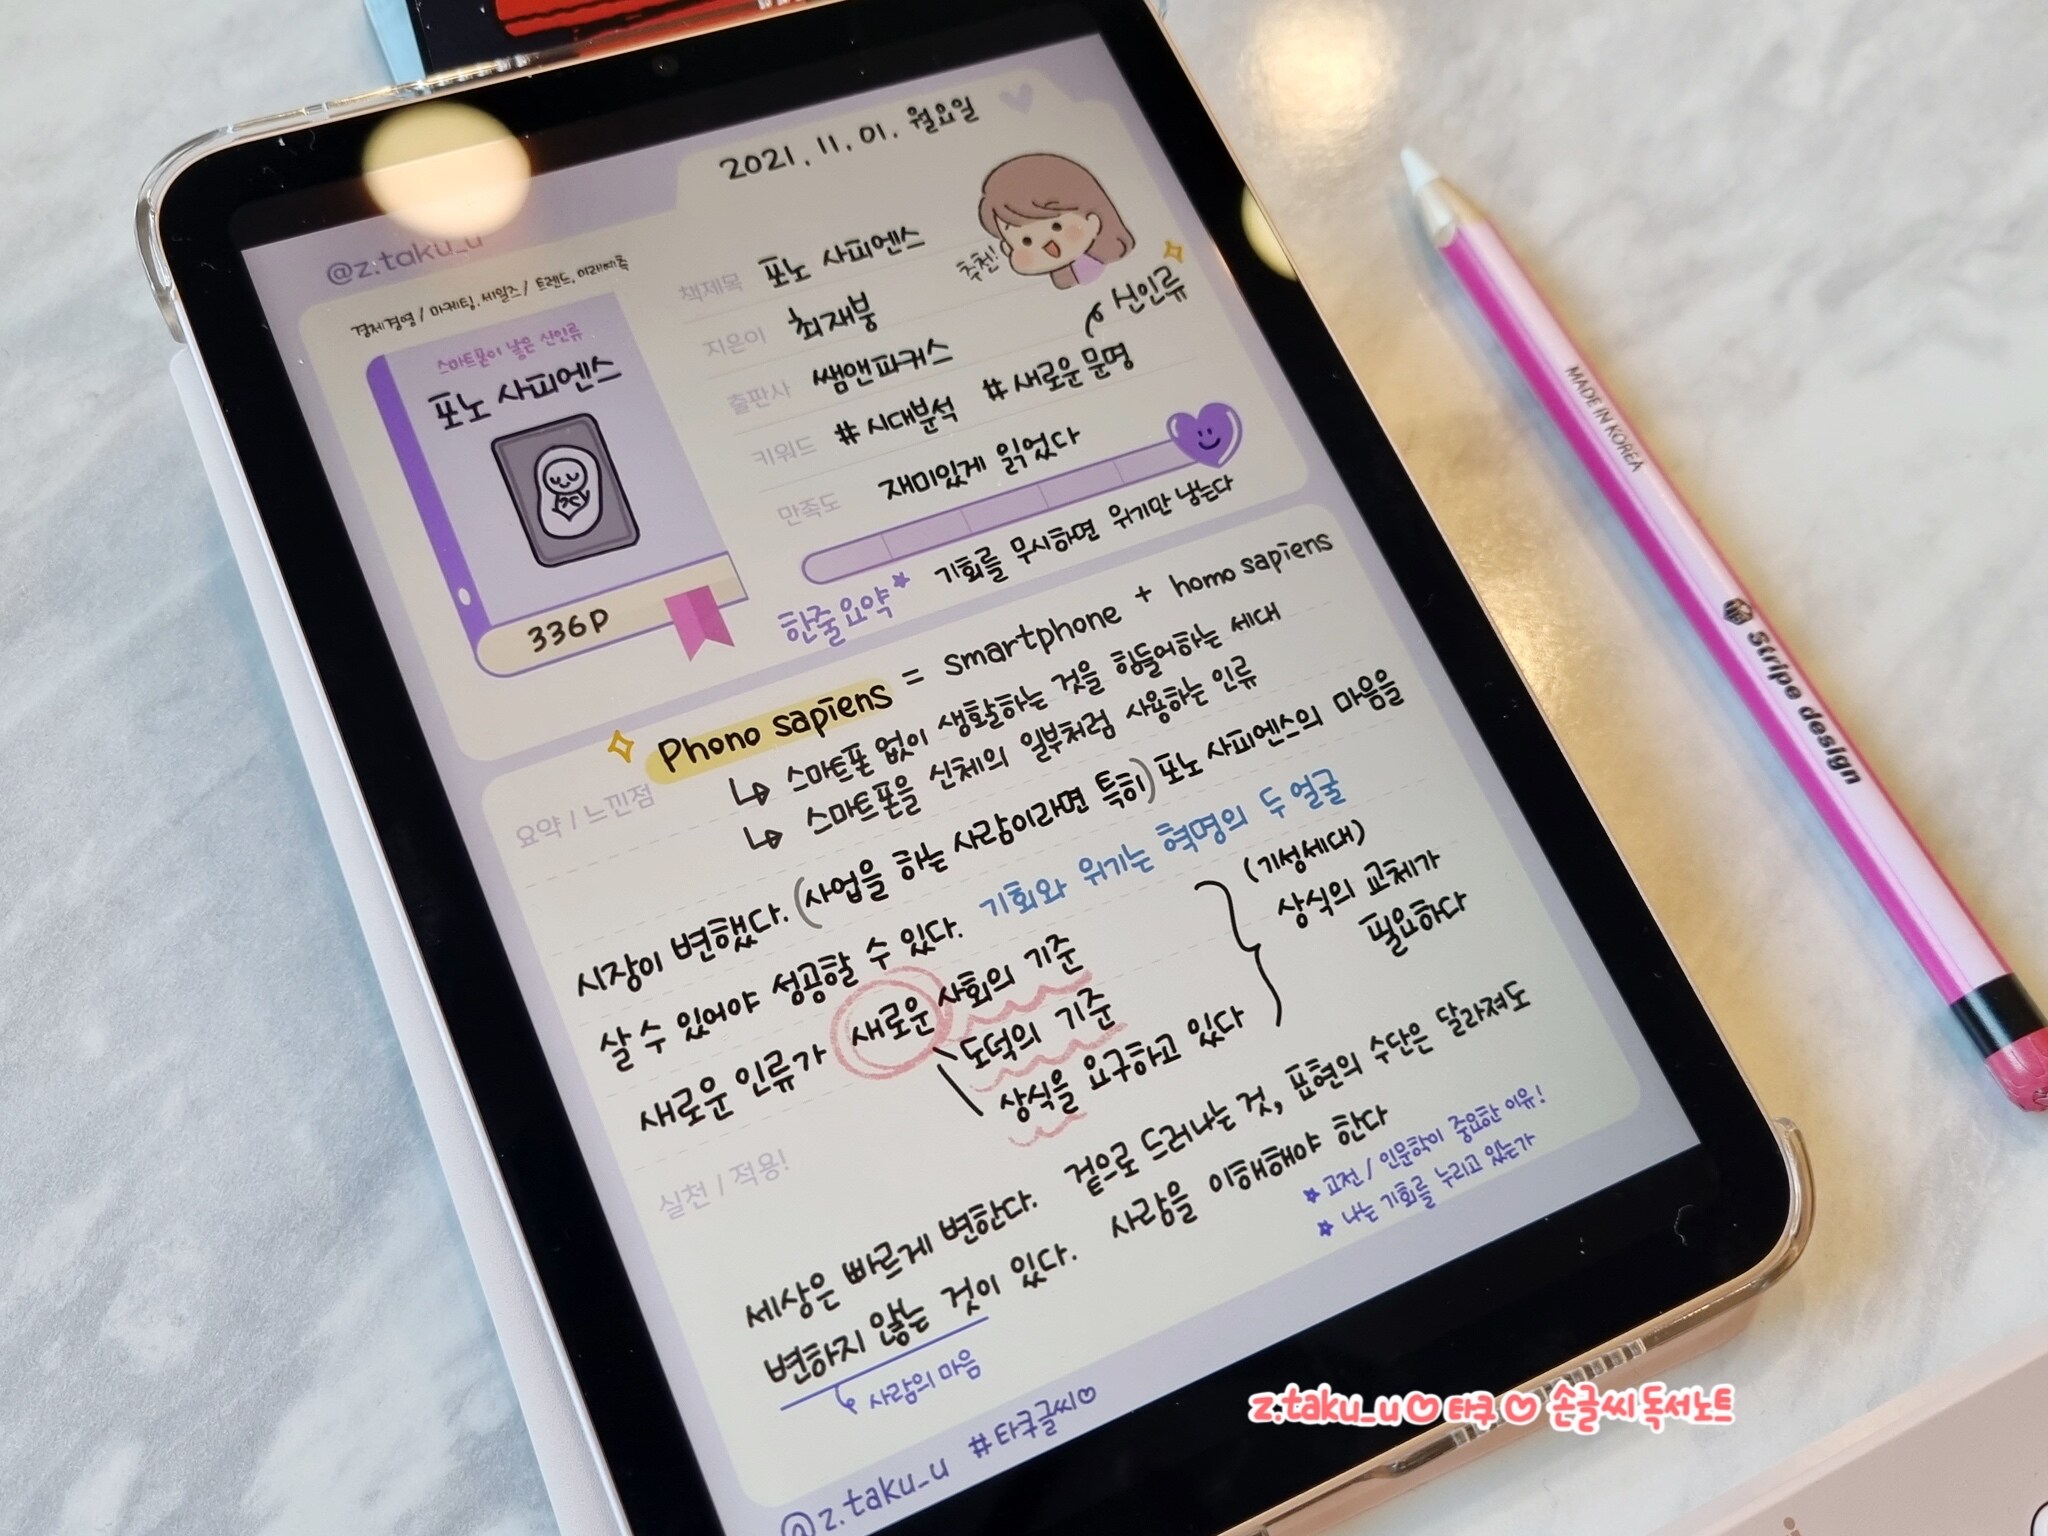 2021. 11. 01. 월요일
@z.taku_u
경제경영 / 마케팅, 세일즈 / 트렌드, 미래예측
스마트폰이 낳은 신인류
포노 사피엔스
336P
책제목 포노 사피엔스
추천!
지은이 최재붕
신인류
출판사 쌤앤파커스
키워드 #시대분석 #새로운 문명
만족도 재미있게 읽었다
한줄요약 기회를 무시하면 위기만 남는다
Phono sapiens = smartphone + homo sapiens
요약 / 느낀점
스마트폰 없이 생활하는 것을 힘들어하는 세대
스마트폰을 신체의 일부처럼 사용하는 인류
시장이 변했다. (사업을 하는 사람이라면 특히) 포노 사피엔스의 마음을
살 수 있어야 성공할 수 있다. 기회와 위기는 혁명의 두 얼굴
새로운 인류가 새로운 사회의 기준
도덕의 기준
상식을 요구하고 있다
(기성세대)
상식의 교체가
필요하다
실천 / 적용!
세상은 빠르게 변한다. 겉으로 드러나는 것, 표현의 수단은 달라져도
변하지 않는 것이 있다. 사람을 이해해야 한다
사람의 마음
고전 / 인문학이 중요한 이유!
나는 기회를 누리고 있는가
@z.taku_u #타쿠글씨♡
MADE IN KOREA
Stripe design
z.taku_u♡타쿠♡손글씨독서노트